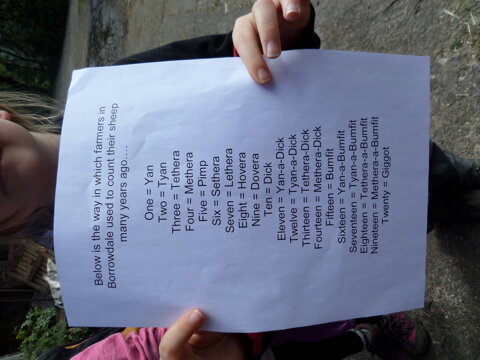 Below is the way in which farmers in
Borrowdale used to count their sheep
many years ago....
One = Yan
Two = Tyan
Three = Tethera
Four = Methera
Five = Pimp
Six = Sethera
Seven = Lethera
Eight = Hovera
Nine = Dovera
Ten = Dick
Eleven = Yan-a-Dick
Twelve = Tyan-a-Dick
Thirteen = Tethera-Dick
Fourteen = Methera-Dick
Fifteen = Bumfit
Sixteen = Yan-a-Bumfit
Seventeen = Tyan-a-Bumfit
Eighteen = Tethera-a-Bumfit
Nineteen = Methera-a-Bumfit
Twenty = Giggot